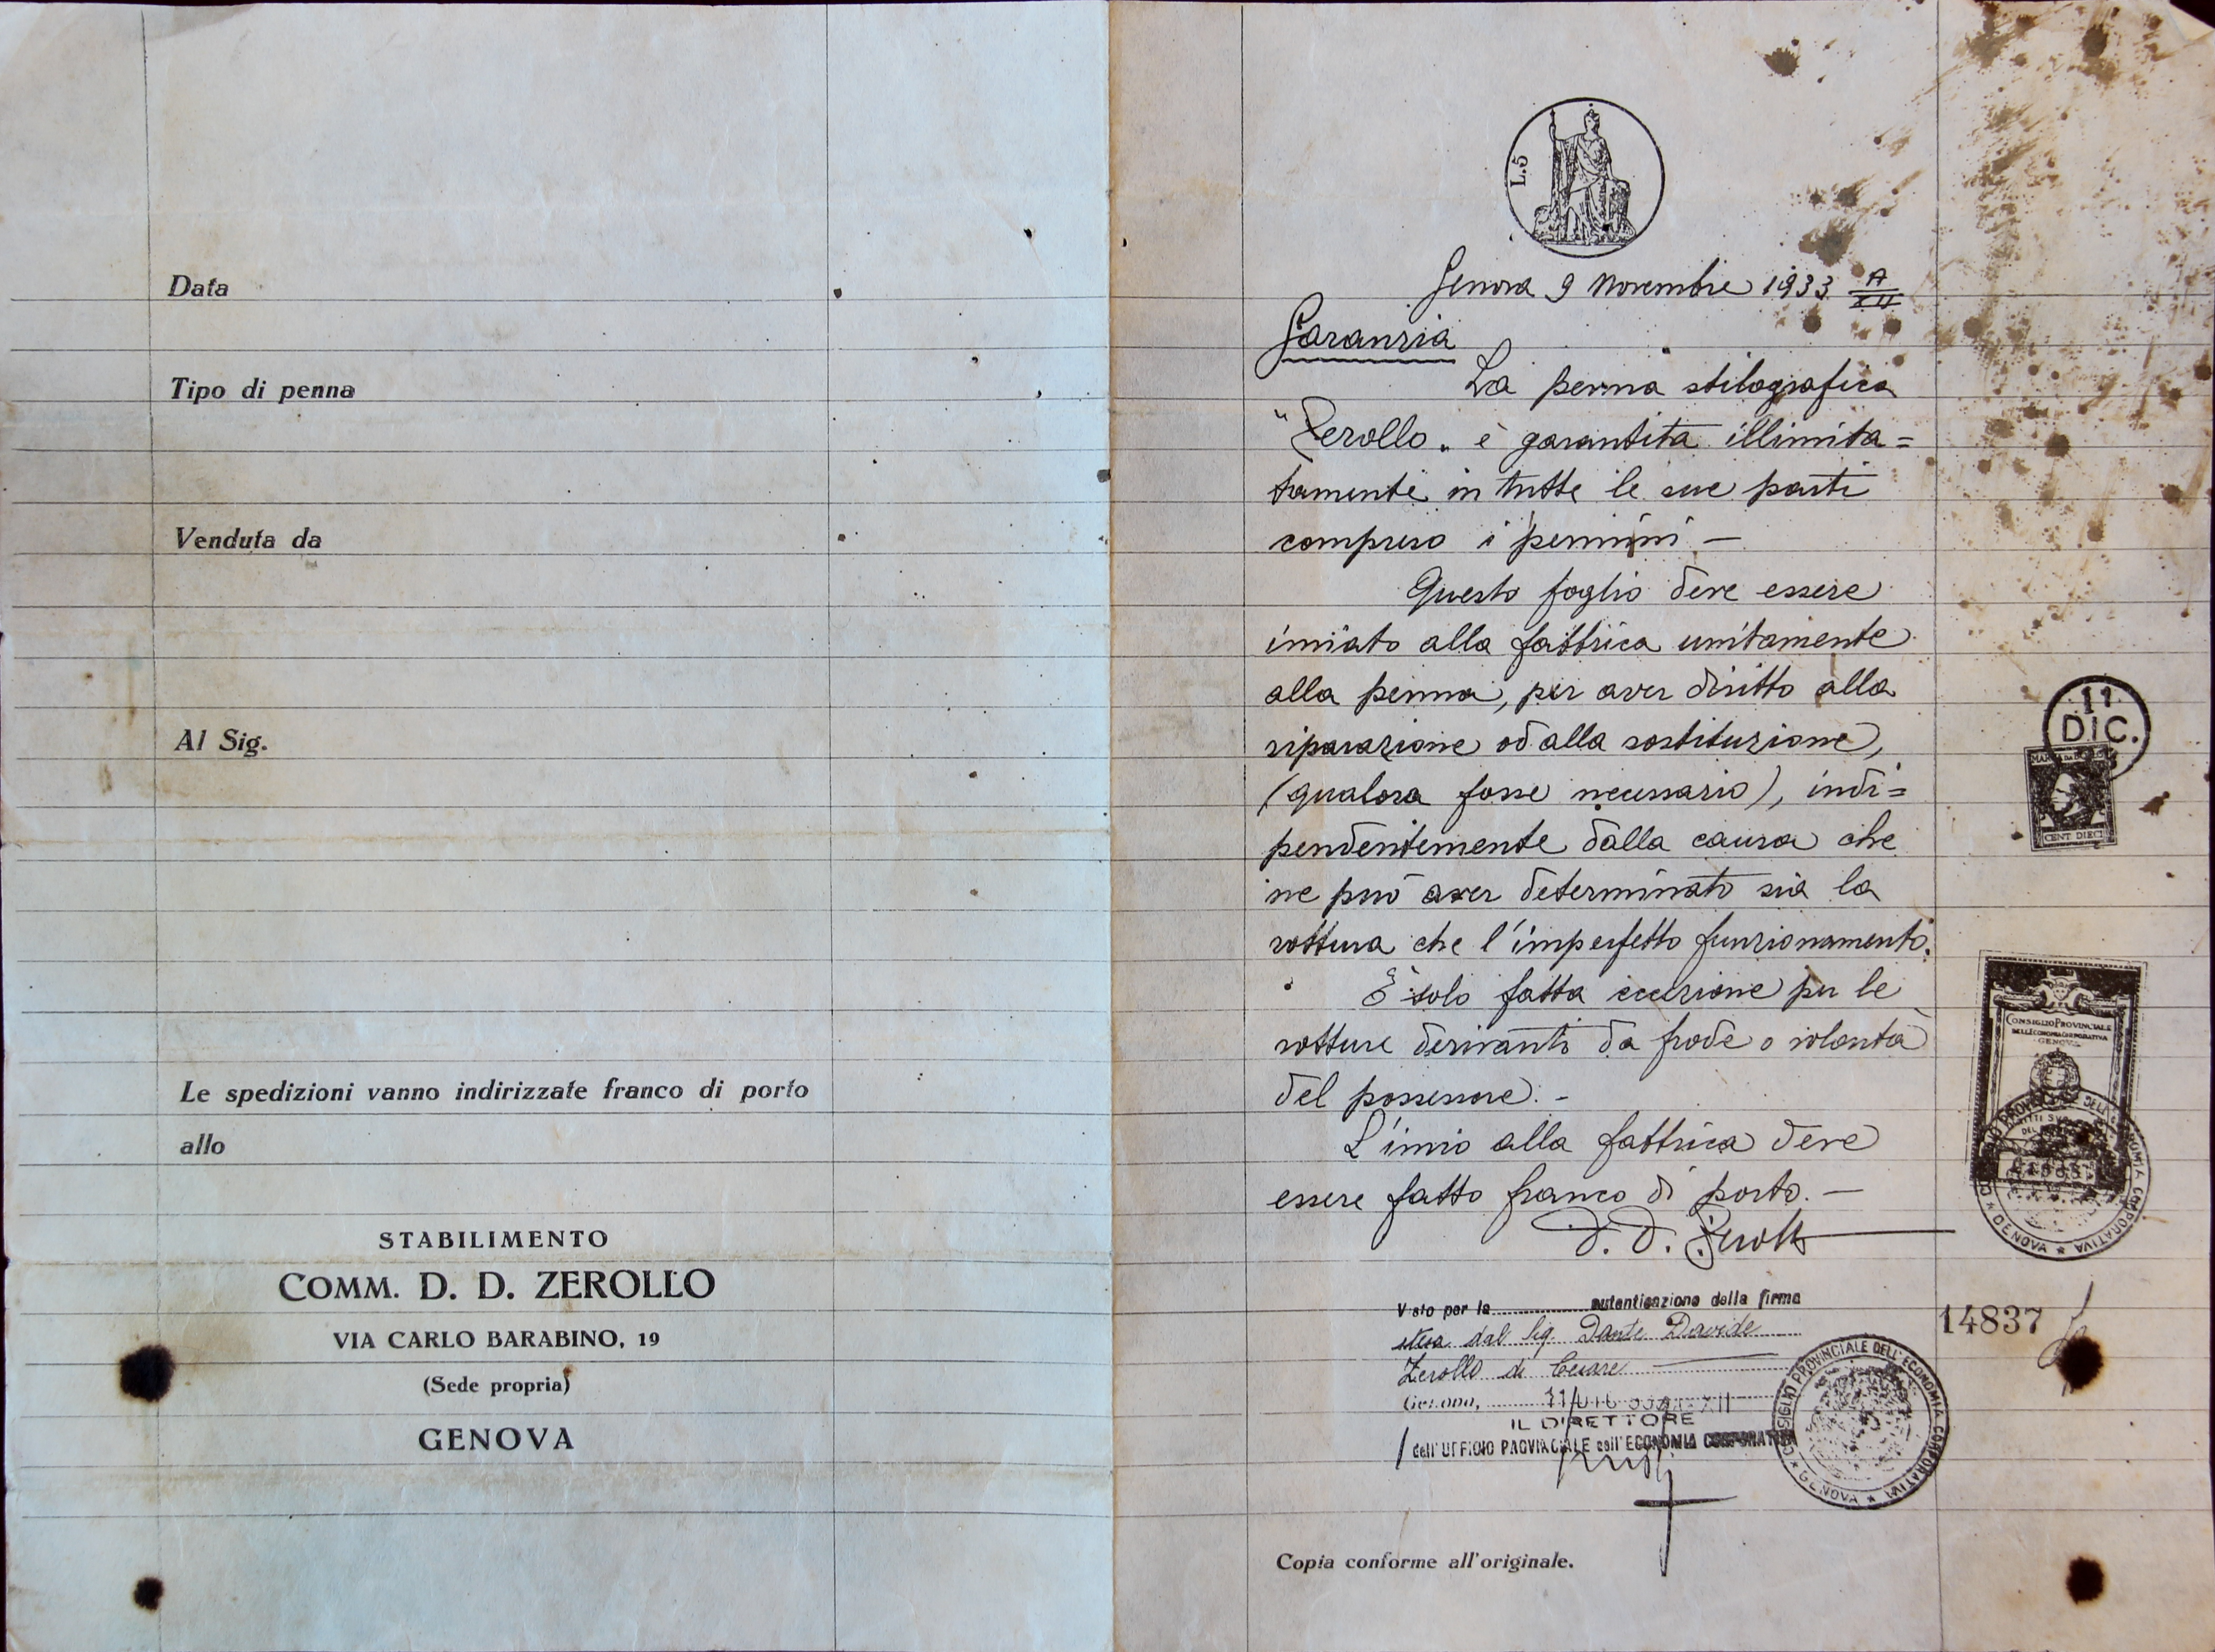 Data
Tipo di penna
Venduta da
Al Sig.
Le spedizioni vanno indirizzate franco di porto
allo
STABILIMENTO
COMM. D. D. ZEROLLO
VIA CARLO BARABINO, 19
(Sede propria)
GENOVA
L.5
Genova 9 Novembre 1933 A XII
Garanzia
La penna stilografica
"Zerollo" è garantita illimita=
tamente in tutte le sue parti
compreso i pennini —
Questo foglio deve essere
inviato alla fabbrica unitamente
alla penna, per aver diritto alla
riparazione od alla sostituzione,
(qualora fosse necessario), indi=
pendentemente dalla causa che
ne può aver determinato sia la
rottura che l'imperfetto funzionamento.
È solo fatta eccezione per le
rotture derivanti da frode o volontà
del possessore. -
L'invio alla fabbrica deve
essere fatto franco di porto. —
D. D. Zerollo
Visto per la autenticazione della firma
stesa dal Sig. Dante Davide
Zerollo di Cesare
Genova, 11 DIC 33 XII
IL DIRETTORE
dell'UFFICIO PROVINCIALE dell'ECONOMIA CORPORATIVA
CONSIGLIO PROVINCIALE DELL'ECONOMIA CORPORATIVA
★ GENOVA ★
Copia conforme all'originale.
11
DIC.
CENT DIECI
CONSIGLIO PROVINCIALE
DELL'ECONOMIA CORPORATIVA
GENOVA
★ GENOVA ★
14837